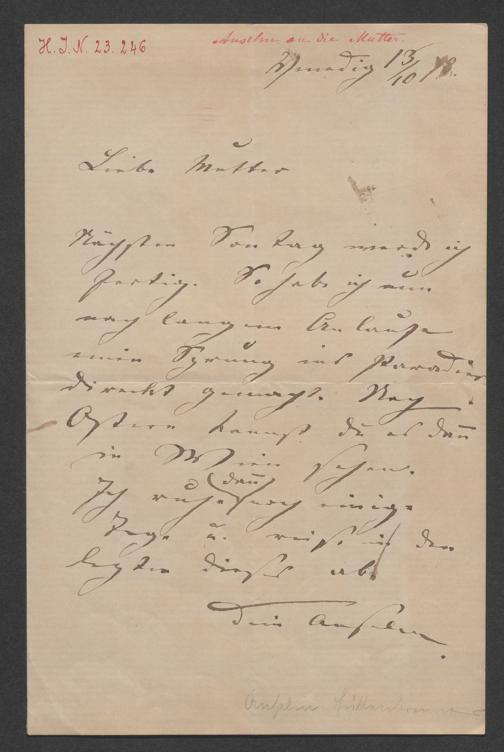 H. I. N. 23.246
Anselm an die Mutter.
Venedig 13/10 78.
Liebe Mutter
Nächsten Sonntag werde ich
fertig. So habe ich nun
nach langem Anlaufe
einen Sprung ins Paradies
direckt gemacht. Nach
Ostern kannst du es dann
in Wien sehen.
Ich ruhe (dann) noch einige
Tage u. reise in den
letzten dieses ab.
Dein Anselm.
Anselm Hüttenbrenner